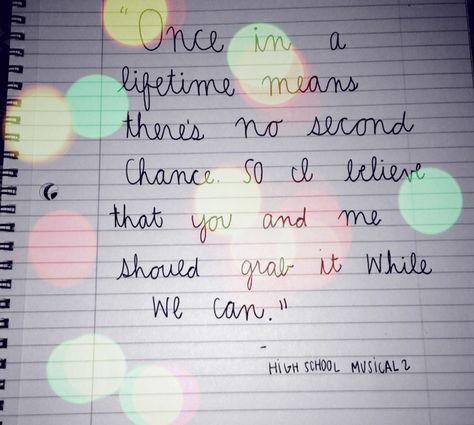 "Once in a
lifetime means
there's no second
chance. So I believe
that you and me
should grab it while
we can."
-
HIGH SCHOOL MUSICAL 2